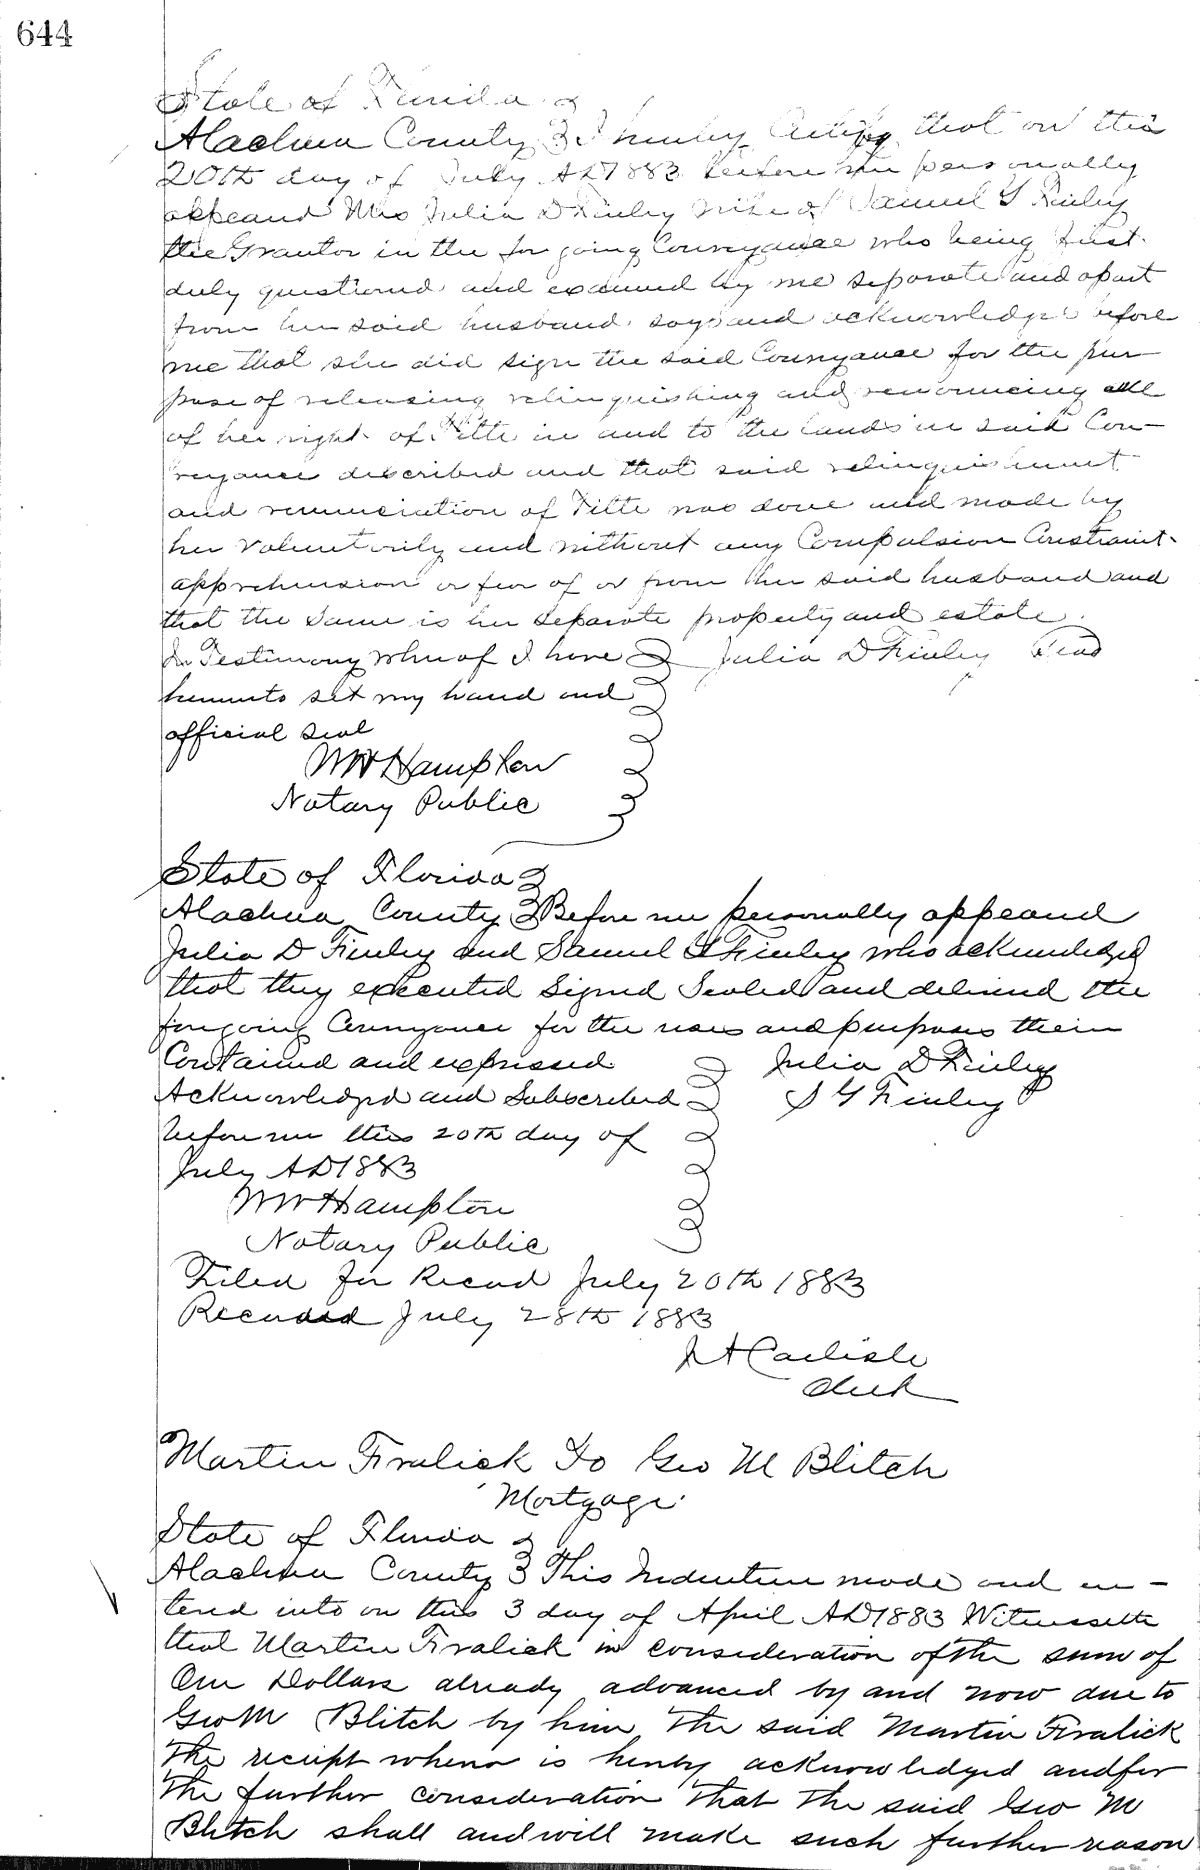 644
State of Florida
Alachua County } I hereby Certify that on this
20th day of July AD 1883 before me personally
appeared Mrs Julia D Finley wife of Samuel Y Finley
the Grantor in the forgoing Conveyance who being first
duly questioned and examined by me separate and apart
from her said husband says and acknowledges before
me that she did sign the said Conveyance for the pur-
pose of releasing relinquishing and renouncing all
of her right of Title in and to the lands in said Con-
veyance described and that said relinquishment
and renunciation of Title was done and made by
her Voluntarily and without any Compulsion Constraint
apprehension or fear of or from her said husband and
that the Same is her separate property and estate.
In Testimony whereof I have } Julia D Finley Seal
hereunto set my hand and
official seal
WW Hampton
Notary Public
State of Florida }
Alachua County } Before me personally appeared
Julia D Finley and Samuel Y Finley who acknowledged
that they executed Signed Sealed and delivered the
forgoing Conveyance for the uses and purposes therein
Contained and expressed } Julia D Finley
Acknowledged and Subscribed } S Y Finley
before me this 20th day of
July AD 1883
WW Hampton
Notary Public
Filed for Record July 20th 1883
Recorded July 28th 1883
J A Carlisle
Clerk
Martin Fralick To Geo M Blitch
Mortgage
State of Florida }
Alachua County } This Indenture made and en-
tered into on this 3 day of April AD 1883 Witnesseth
that Martin Fralick in consideration of the sum of
One Dollars already advanced by and now due to
Geo M Blitch by him The said Martin Fralick
The receipt whereof is hereby acknowledged and for
The further consideration That The said Geo M
Blitch shall and will make such further reason